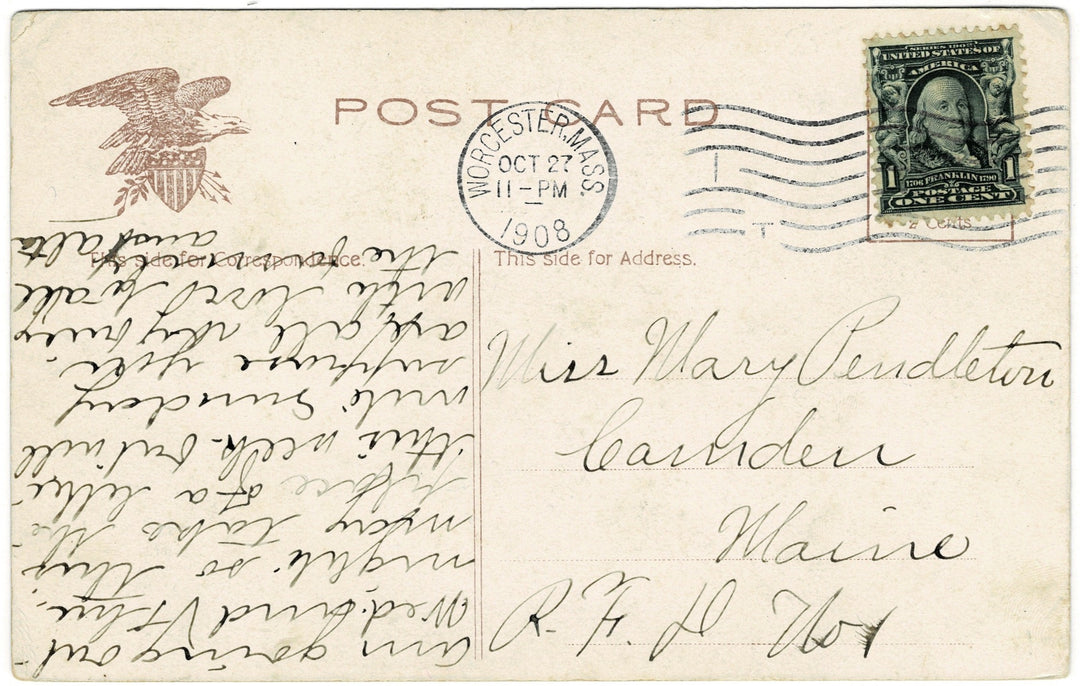 POST CARD
WORCESTER, MASS.
OCT 27
11-PM
1908
SERIES 1902
UNITED STATES OF
AMERICA
1 1
1706 FRANKLIN 1790
POSTAGE
ONE CENT
2 Cents
This side for Correspondence.
This side for Address.
Miss Mary Pendleton
Camden
Maine
R. F. D No 1
am going out
Wed. and
night so this
may take the
place of a letter
this week. but will
write Sunday
suppose you
are all
with love to all
the